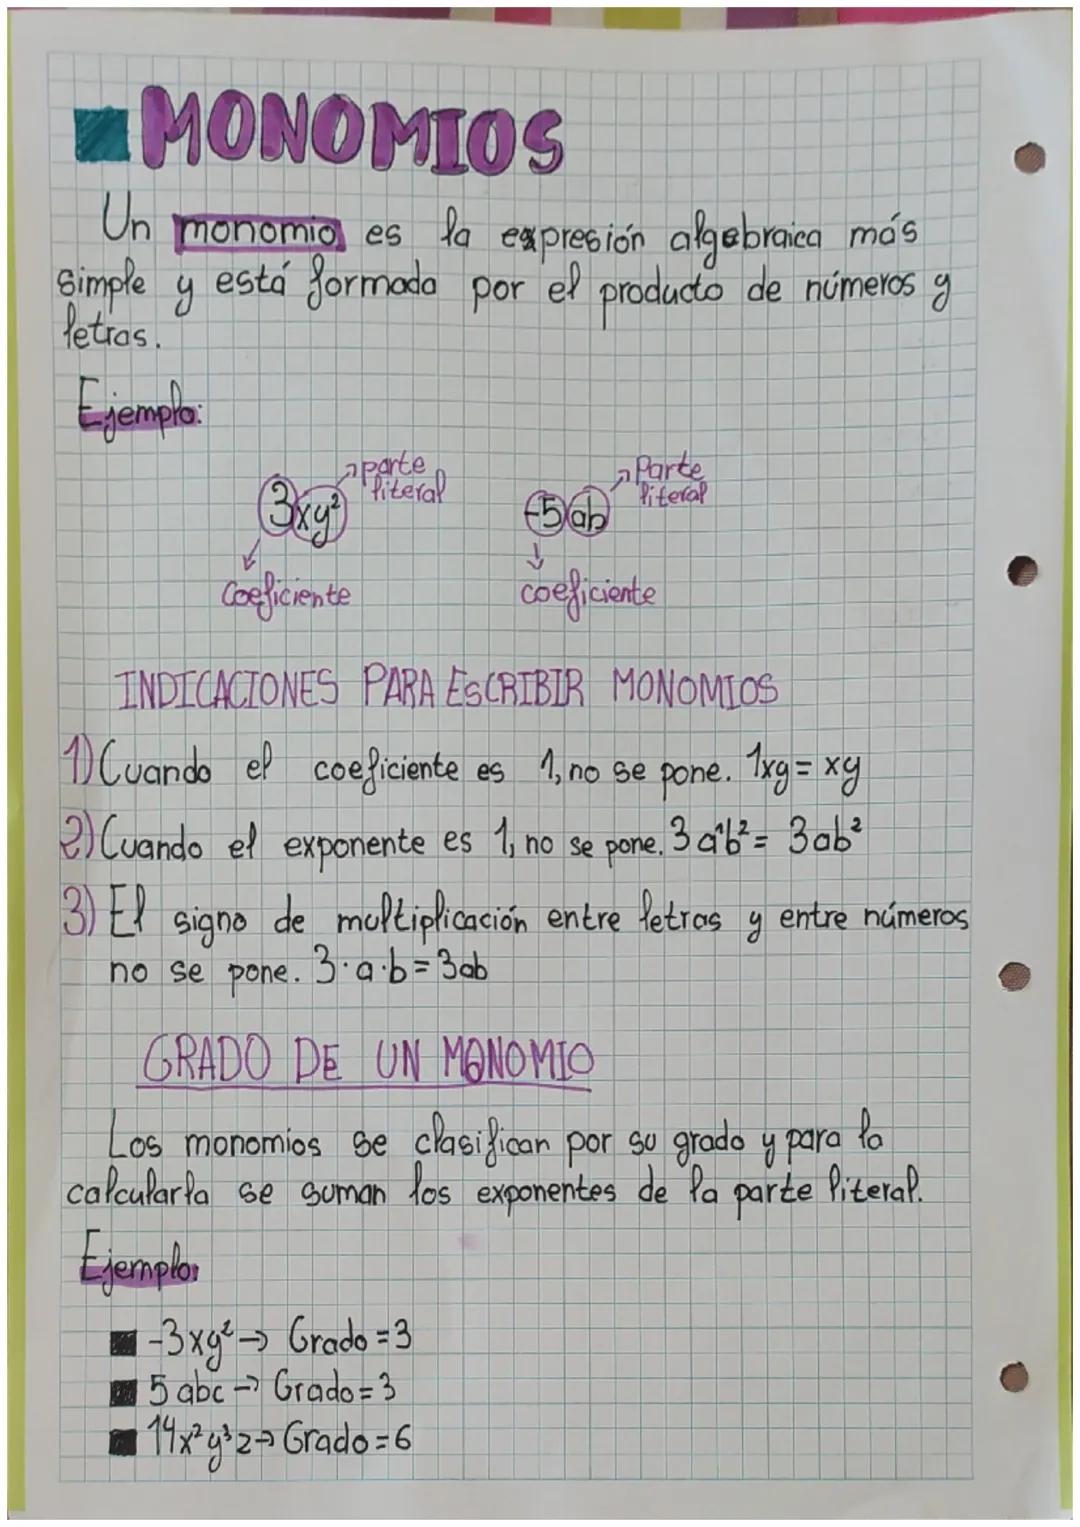 MONOMIOS
Un monomio es la expresión algebraica más
simple y está formada por el producto de números y
letras.
Ejemplo:
parte
literal
Parte
literal
3xy²
-5ab
Coeficiente
coeficiente
INDICACIONES PARA ESCRIBIR MONOMIOS
1) Cuando el coeficiente es 1, no se pone. 1xy = xy
2) Cuando el exponente es 1, no se pone. 3a¹b² = 3ab²
3) El signo de multiplicación entre letras y entre números
no se pone. 3·a·b = 3ab
GRADO DE UN MONOMIO
Los monomios se clasifican por su grado y para la
calcularla se suman los exponentes de la parte literal.
Ejemplo:
-3xy² → Grado = 3
5abc → Grado = 3
14x²y³z → Grado = 6